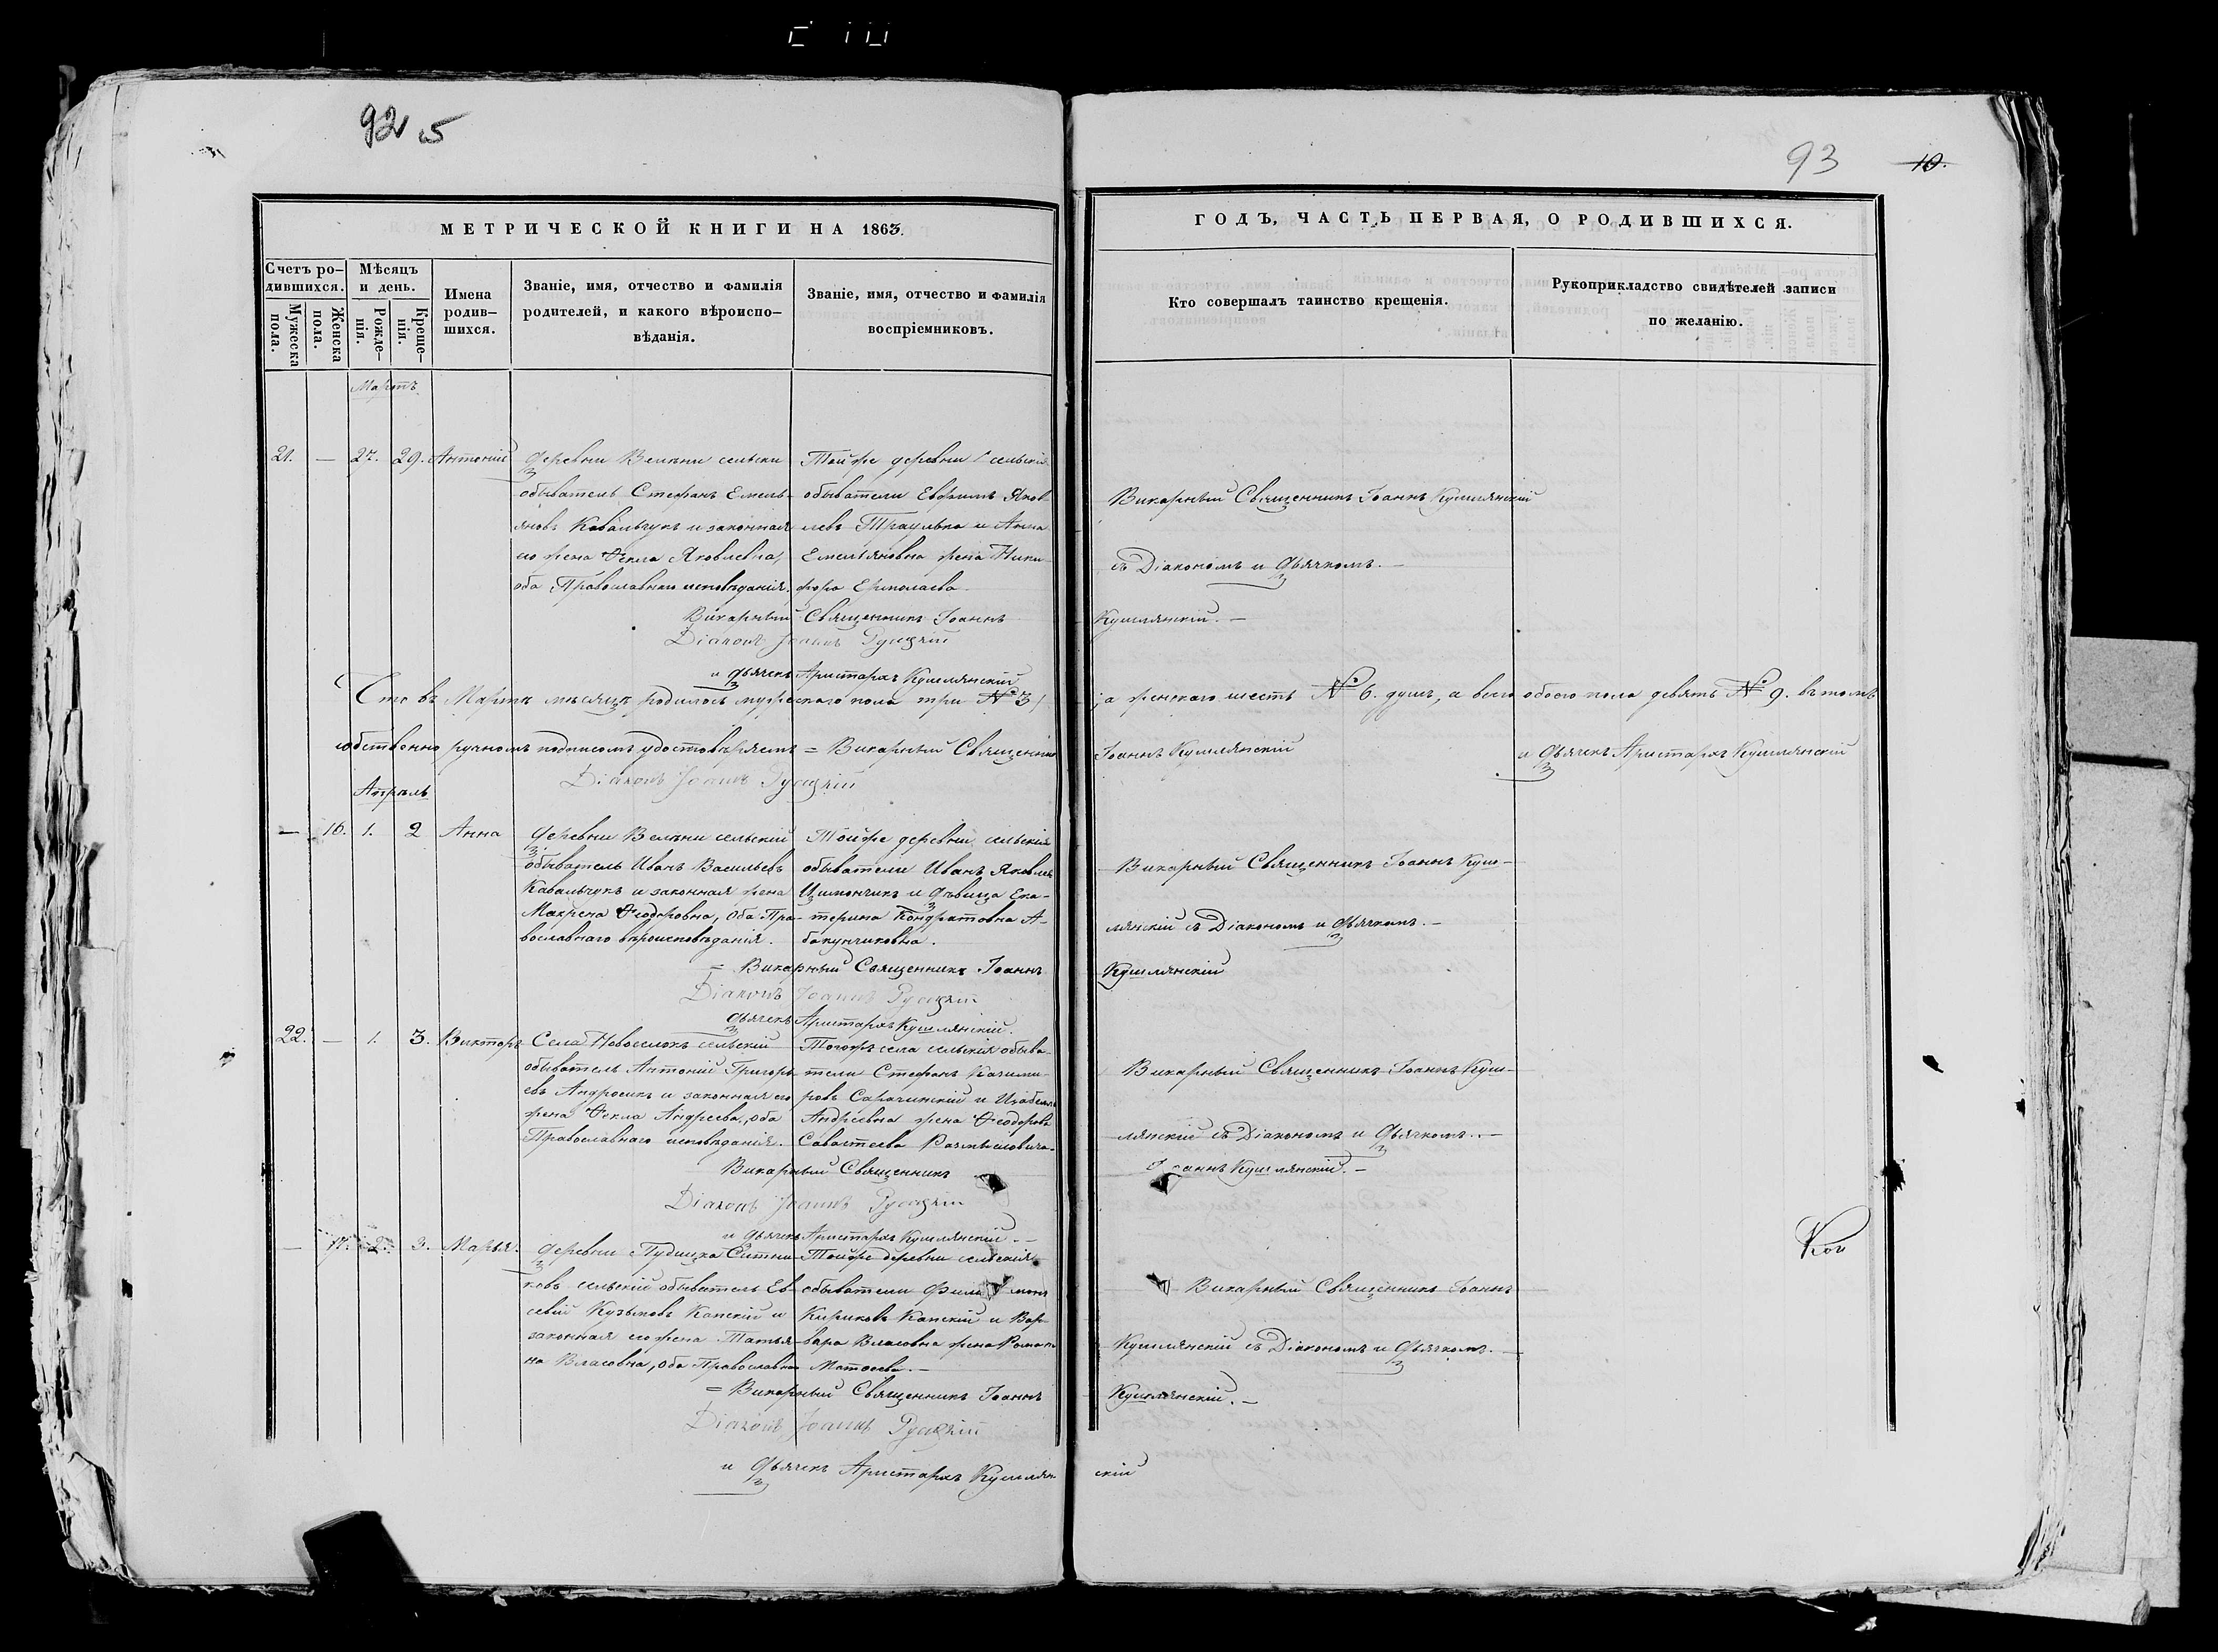 92 5
МЕТРИЧЕСКОЙ КНИГИ НА 1863.
Счетъ ро-
дившихся.
Мужеска
пола.
Женска
пола.
Мѣсяцъ
и день.
Рожде-
нія.
Креще-
нія.
Имена
родив-
шихся.
Званіе, имя, отчество и фамилія
родителей, и какого вѣроиспо-
вѣданія.
Званіе, имя, отчество и фамилія
воспріемниковъ.
Мартъ.
21. — 27. 29. Антоній
деревни сельскій
обыватель Стефанъ Емель-
яновъ Ковальчукъ и законная
его жена Ѳекла Яковлевна,
оба Православнаго исповѣданія.
Тойже деревни сельскія
обыватели Евфимъ Яков-
левъ и Анна
Емельяновна жена Ники-
фора Ермолаева
Викарный Священникъ Іоаннъ
Діаконъ Іоаннъ
и Дьячекъ Аристархъ Кушлянскій
Что въ Мартѣ мѣсяцѣ родилось мужескаго пола три № 3
собственно ручнымъ подписомъ удостовѣряемъ = Викарный Священникъ
Діаконъ Іоаннъ
Апрѣль
— 16. 1. 2 Анна
деревни сельскій
обыватель Иванъ Васильевъ
Ковальчукъ и законная жена
Макрена Ѳеодоровна, оба Пра-
вославнаго вѣроисповѣданія.
Тойже деревни сельскія
обыватели Иванъ Яковлевъ
и дѣвица Ека-
терина Кондратовна А-
бакунчиковна.
= Викарный Священникъ Іоаннъ
Діаконъ Іоаннъ
Дьячекъ Аристархъ Кушлянскій.
22. — 1. 3. Викторъ
Села Новоселокъ сельскій
обыватель Антоній Григорь-
евъ Андросикъ и законная его
жена Ѳекла Андреева, оба
Православнаго исповѣданія.
Тогожъ села сельскія обыва-
тели Стефанъ Казими-
ровъ и Изабелла
Андреевна жена Ѳеодоровъ
Викарный Священникъ
Діаконъ Іоаннъ
и Дьячекъ Аристархъ Кушлянскій. —
— 17. 2. 3. Марья.
деревни
ковъ сельскій обыватель Ев-
севій Козьмовъ Капскій и
законная его жена Татья-
на Власовна, оба Православн
Тойже деревни сельскія
обыватели
Кириковъ Капскій и Вар-
вара Власовна жена Романа
Матѳеева. —
= Викарный Священникъ Іоаннъ
Діаконъ Іоаннъ
и Дьячекъ Аристархъ Кушлян
93 10.
ГОДЪ, ЧАСТЬ ПЕРВАЯ, О РОДИВШИХСЯ.
Кто совершалъ таинство крещенія.
Рукоприкладство свидѣтелей записи
по желанію.
Викарный Священникъ Іоаннъ Кушлянскій
съ Діакономъ и Дьячкомъ. —
Кушлянскій. —
а женскаго шесть № 6. душъ, а всего обоего пола девять № 9. въ томъ
Іоаннъ Кушлянскій
и Дьячекъ Аристархъ Кушлянскій
Викарный Священникъ Іоаннъ Куш-
лянскій съ Діакономъ и Дьячкомъ. —
Кушлянскій
Викарный Священникъ Іоаннъ Куш-
лянскій съ Діакономъ и Дьячкомъ. —
Іоаннъ Кушлянскій. —
Викарный Священникъ Іоаннъ
Кушлянскій съ Діакономъ и Дьячкомъ. —
Кушлянскій. —
скій